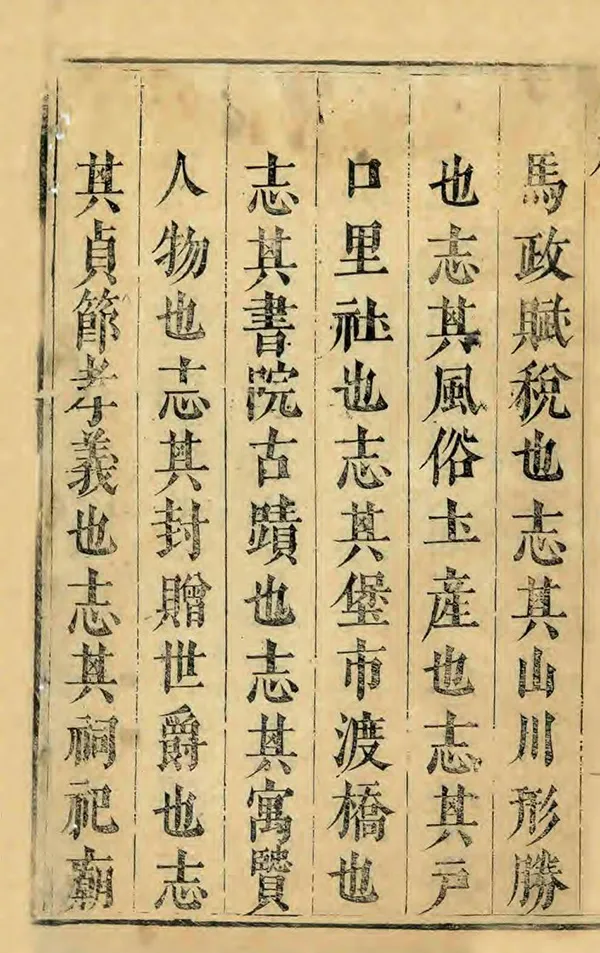 馬政賦稅也志其山川形勝
也志其風俗土產也志其戶
口里社也志其堡市渡橋也
志其書院古蹟也志其寓賢
人物也志其封贈世爵也志
其貞節孝義也志其祠祀廟